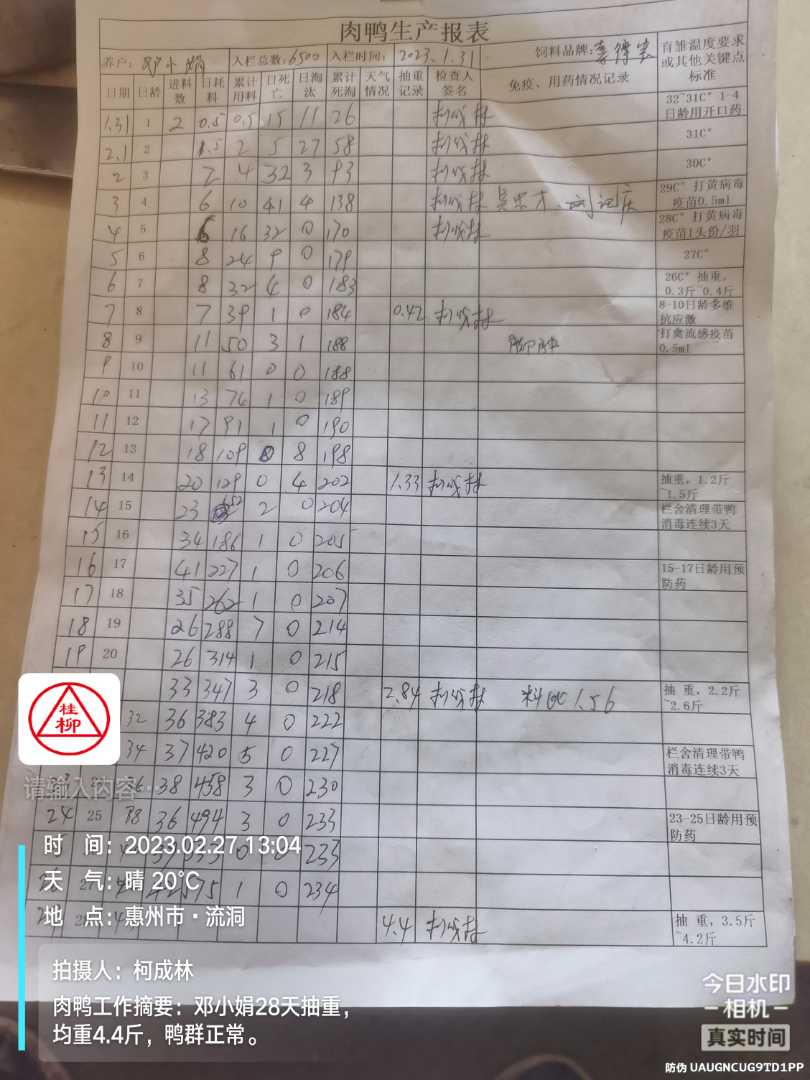 肉鸭生产报表
养户：邓小娟 入栏总数：6500 入栏时间：2023.1.31 饲料品牌：
日期 日龄 进料数 日耗料 累计用料 日死亡 日淘汰 累计死淘 天气情况 抽重记录 检查人签名 免疫、用药情况记录 育雏温度要求或其他关键点标准
1.31 1 2 0.5 0.5 15 11 26 32~31C° 1-4日龄用开口药
2.1 2 1.5 2 5 27 58 31C°
2 3 2 4 32 3 93 30C°
3 4 6 10 41 4 138 29C° 打黄病毒疫苗0.5ml
4 5 6 16 32 0 170 28C° 打黄病毒疫苗1头份/羽
5 6 8 24 9 0 179 27C°
6 7 8 32 4 0 183 26C° 抽重，0.3斤~0.4斤
7 8 7 39 1 0 184 0.42 8-10日龄多维抗应激
8 9 11 50 3 1 188 打禽流感疫苗0.5ml
9 10 11 61 0 0 188
10 11 13 74 1 0 189
11 12 17 91 1 0 190
12 13 18 109 0 8 198
13 14 20 129 0 4 202 1.33 抽重，1.2斤~1.5斤
14 15 23 152 2 0 204 栏舍清理带鸭消毒连续3天
15 16 34 186 1 0 205
16 17 41 227 1 0 206 15-17日龄用预防药
17 18 35 262 1 0 207
18 19 26 288 7 0 214
19 20 26 314 1 0 215
33 347 3 0 218 2.84 料肉1.56 抽重，2.2斤~2.6斤
32 36 383 4 0 222
34 37 420 5 0 227 栏舍清理带鸭消毒连续3天
36 38 458 3 0 230
24 25 38 36 494 3 0 233 23-25日龄用预防药
0 0 233
27 1 0 234
4.4 抽重，3.5斤~4.2斤
桂柳
请输入内容…
时 间：2023.02.27 13:04
天 气：晴 20℃
地 点：惠州市·流洞
拍摄人：柯成林
肉鸭工作摘要：邓小娟28天抽重，
均重4.4斤，鸭群正常。
今日水印
相机
真实时间
防伪 UAUGNCUG9TD1PP